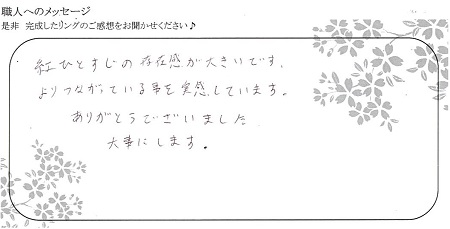 職人へのメッセージ
是非 完成したリングのご感想をお聞かせください♪
紅ひとすじの存在感が大きいです。
よりつながっている事を実感しています。
ありがとうございました
大事にします。